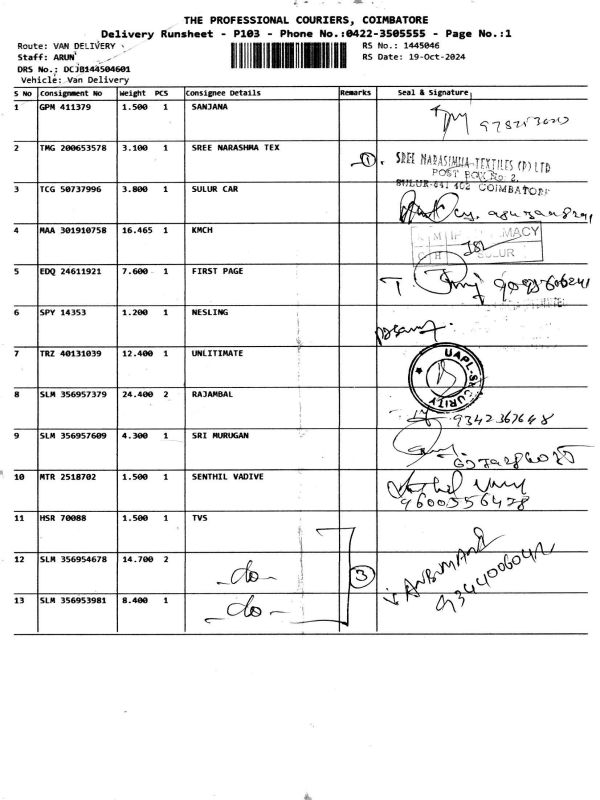 THE PROFESSIONAL COURIERS, COIMBATORE
Delivery Runsheet - P103 - Phone No.:0422-3505555 - Page No.:1
Route: VAN DELIVERY RS No.: 1445046
Staff: ARUN RS Date: 19-Oct-2024
DRS No.: DCJB144504601
Vehicle: Van Delivery
S No Consignment No Weight PCS Consignee Details Remarks Seal & Signature
1 GPM 411379 1.500 1 SANJANA
2 TMG 200653578 3.100 1 SREE NARASHMA TEX 1. SREE NARASIMHA TEXTILES (P) LTD
POST BOX No: 2,
SULUR-641 402 COIMBATORE
3 TCG 50737996 3.800 1 SULUR CAR
4 MAA 301910758 16.465 1 KMCH
SULUR
5 EDQ 24611921 7.600 1 FIRST PAGE
6 SPY 14353 1.200 1 NESLING
7 TRZ 40131039 12.400 1 UNLITIMATE UAPL-SECURITY
8 SLM 356957379 24.400 2 RAJAMBAL 9342367648
9 SLM 356957609 4.300 1 SRI MURUGAN
10 MTR 2518702 1.500 1 SENTHIL VADIVE 9600556428
11 HSR 70088 1.500 1 TVS
12 SLM 356954678 14.700 2 -do- 3 ANBUMANI
9344006042
13 SLM 356953981 8.400 1 -do-